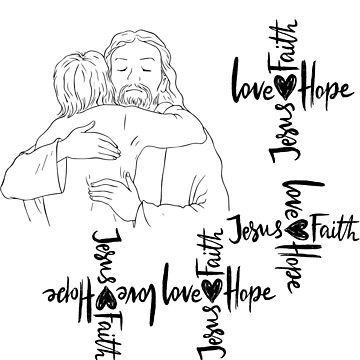 Faith
love Hope
Jesus
love
Jesus Faith
Hope
Jesus
Hope love
Faith
Faith
love Hope
Jesus